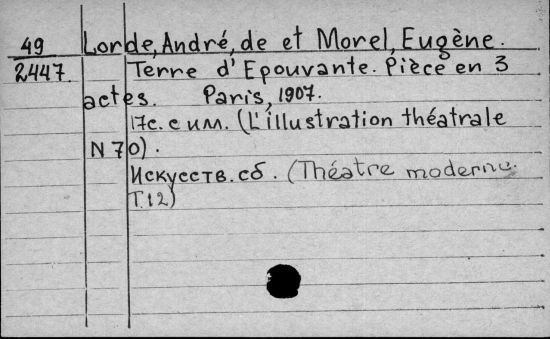 49 Lorde, André, de et Morel, Eugène.
2447. Terre d'Epouvante. Pièce en 3
actes. Paris, 1907.
17с. с илл. (L'illustration théatrale
N 70).
Искусств. сб. (Théatre moderne.
T.12)